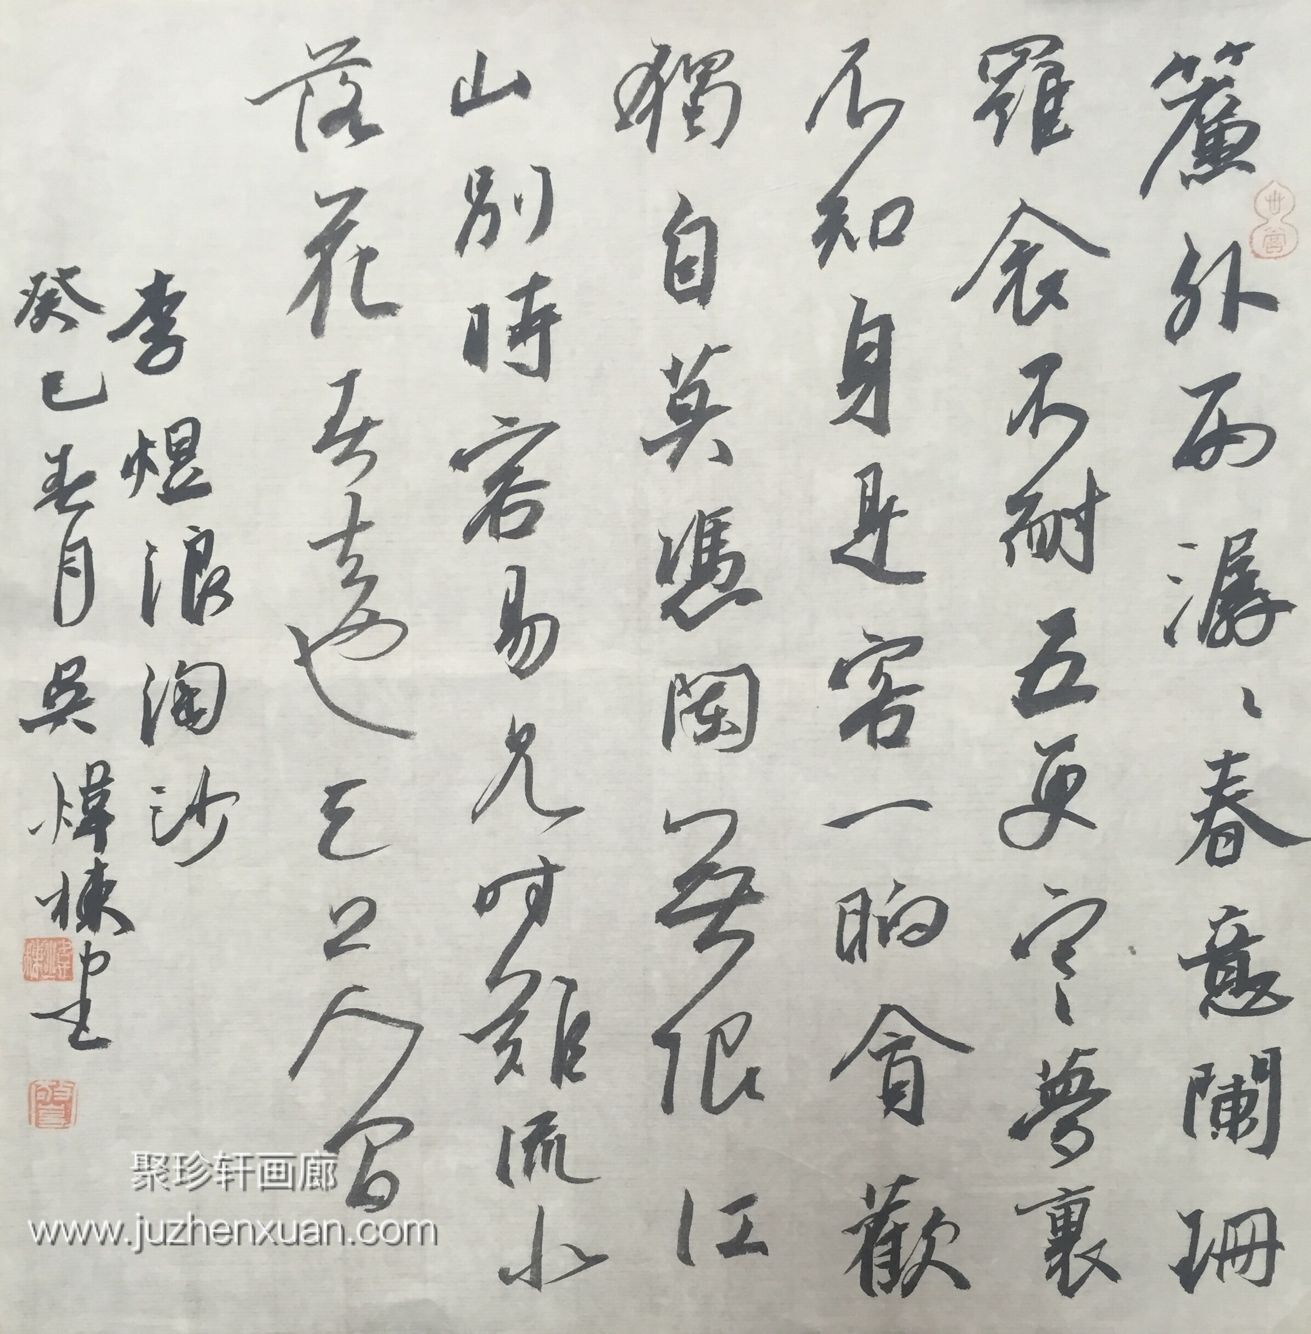 簾外雨潺、春意闌珊
羅衾不耐五更寒、夢裏
不知身是客一晌貪歡
獨自莫憑闌無限江
山別時容易見時難流水
落花春去也天上人間
李煜浪淘沙
癸巳春月吳煒棟書
聚珍轩画廊
www.juzhenxuan.com